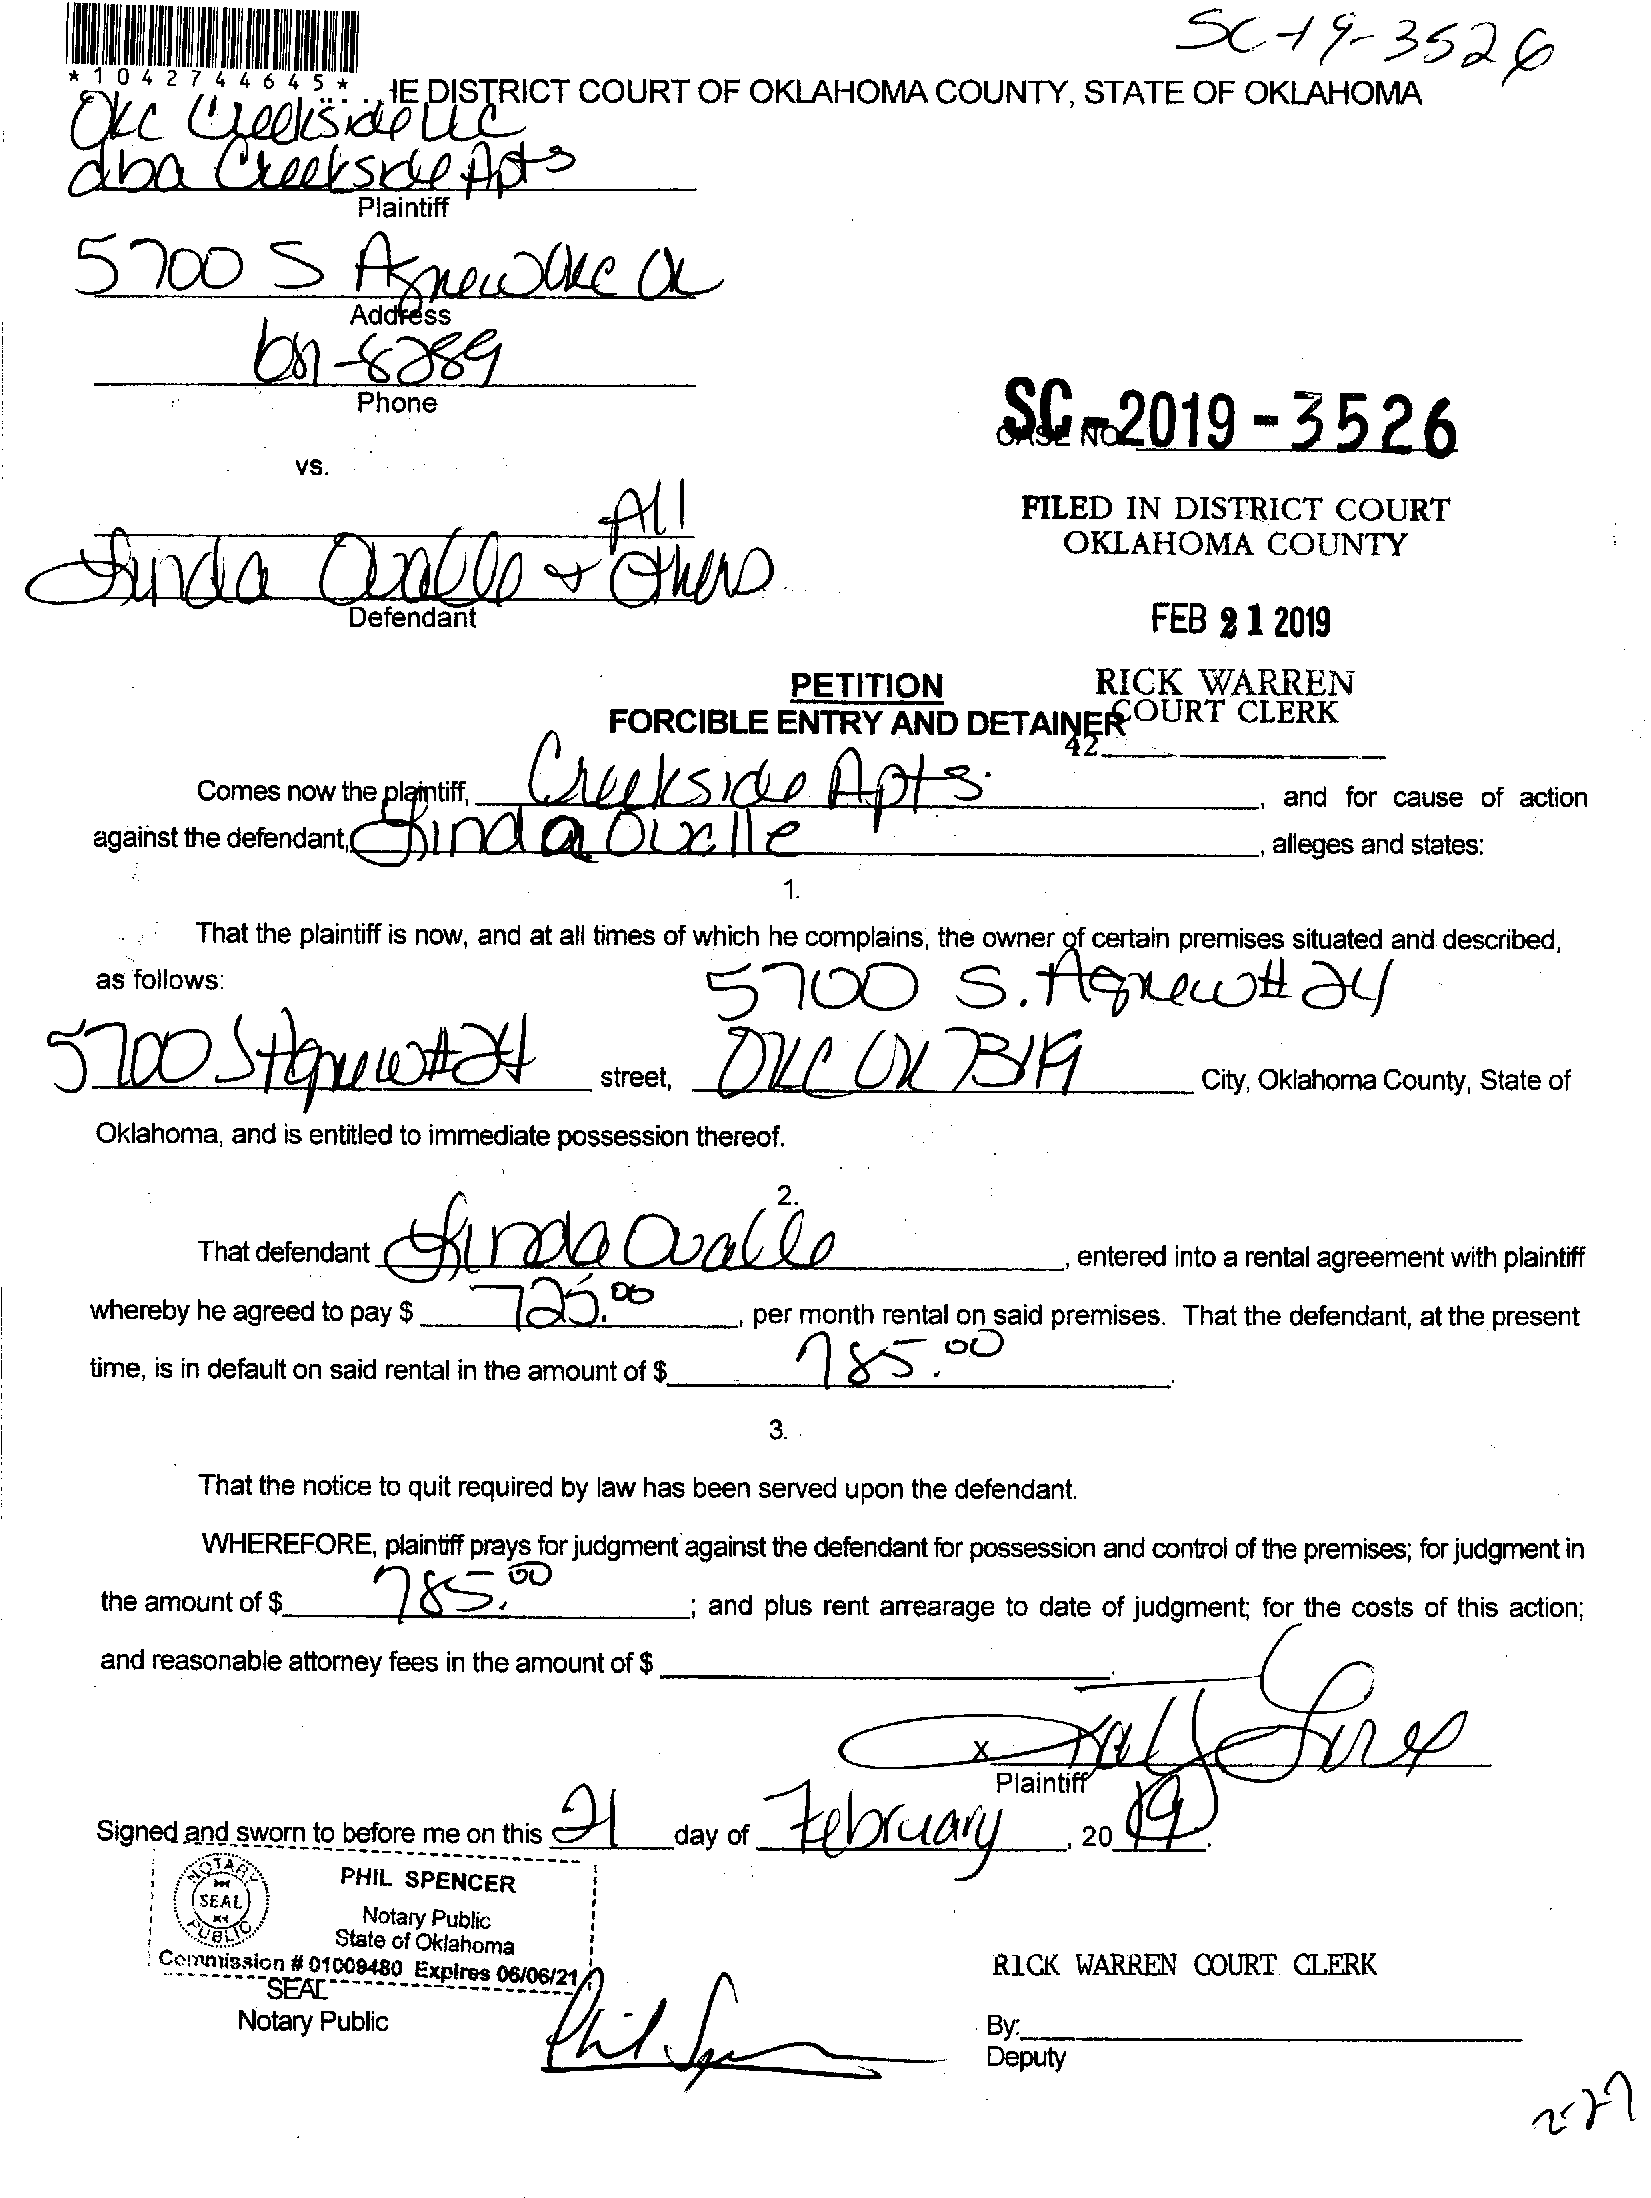 SC-19-3526
*1042744645*
HE DISTRICT COURT OF OKLAHOMA COUNTY, STATE OF OKLAHOMA
OKC Creekside LLC
dba Creekside Apts
Plaintiff
5700 S Agnew OKC OK
Address
681-8289
Phone
SC-2019-3526
CASE NO.
vs.
All
FILED IN DISTRICT COURT
OKLAHOMA COUNTY
Linda Ovalle + Others
Defendant
FEB 21 2019
PETITION
RICK WARREN
FORCIBLE ENTRY AND DETAINER
COURT CLERK
42
Comes now the plaintiff, Creekside Apts. , and for cause of action
against the defendant, Linda Ovalle , alleges and states:
1.
That the plaintiff is now, and at all times of which he complains, the owner of certain premises situated and described,
as follows: 5700 S. Agnew # 24
5700 S Agnew # 24 street, OKC OK 73119 City, Oklahoma County, State of
Oklahoma, and is entitled to immediate possession thereof.
2.
That defendant Linda Ovalle , entered into a rental agreement with plaintiff
whereby he agreed to pay $ 725.00 , per month rental on said premises. That the defendant, at the present
time, is in default on said rental in the amount of $ 785.00 .
3.
That the notice to quit required by law has been served upon the defendant.
WHEREFORE, plaintiff prays for judgment against the defendant for possession and control of the premises; for judgment in
the amount of $ 785.00 ; and plus rent arrearage to date of judgment; for the costs of this action;
and reasonable attorney fees in the amount of $ .
x
Plaintiff
Signed and sworn to before me on this 21 day of February , 20 19 .
NOTARY PUBLIC
SEAL
PHIL SPENCER
Notary Public
State of Oklahoma
Commission # 01009480 Expires 06/06/21
SEAL
Notary Public
Phil Spencer
RICK WARREN COURT CLERK
By:
Deputy
2-27